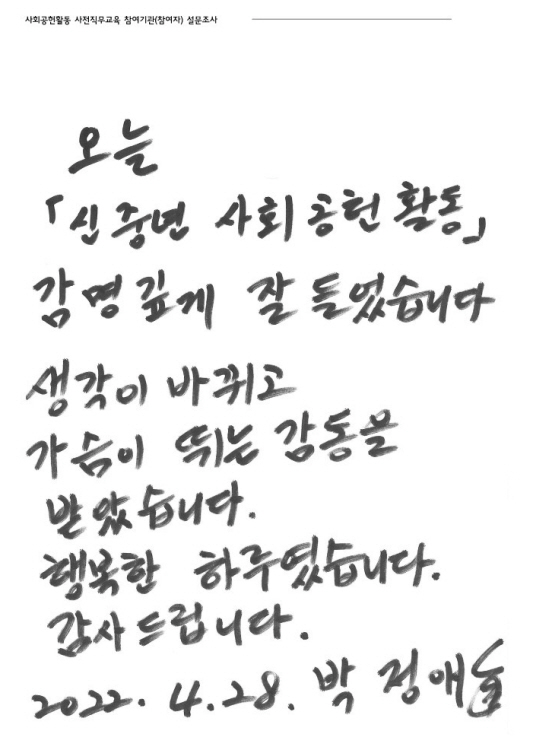 사회공헌활동 사전직무교육 참여기관(참여자) 설문조사
오늘
「신중년 사회공헌활동」
감명깊게 잘 들었습니다
생각이 바뀌고
가슴이 뛰는 감동을
받았습니다.
행복한 하루였습니다.
감사드립니다.
2022. 4. 28. 박정애